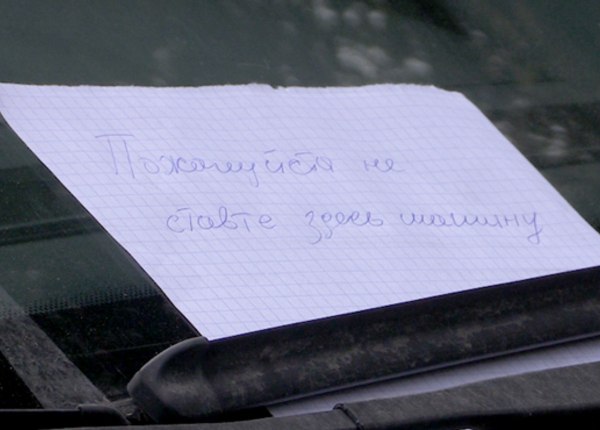 Пожалуйста не
ставте здесь машину